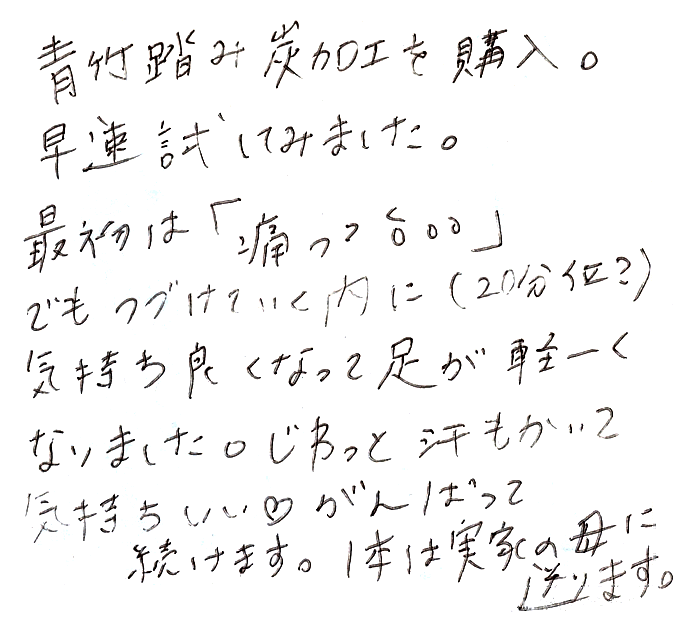 青竹踏み炭加工を購入。
早速試してみました。
最初は「痛っつ。。。」
でもつづけていく内に(20分位?)
気持ち良くなって足が軽ーく
なりました。じわっと汗もかいて
気持ちいい♡がんばって
続けます。1本は実家の母に
送ります。